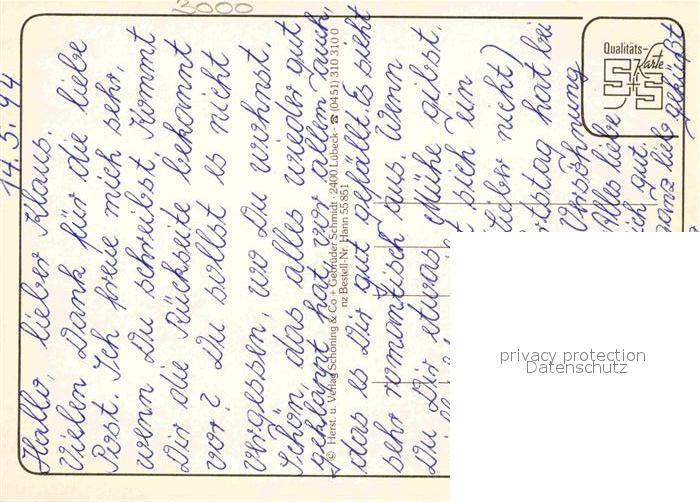 14.5.94
Hallo, lieber Klaus.
Vielen Dank für die liebe
Post. Ich freue mich sehr,
wenn Du schreibst. Kommt
Dir die Rückseite bekannt
vor? Du sollst es nicht
vergessen, wo Du wohnst.
Schön, das alles wieder gut
geklappt hat, vor allem auch,
das es Dir gut gefällt. Es sieht
sehr romantisch aus. Wenn
Du Dir etwas Mühe gibst,
sich ein
lieber nicht)
tstag hat bei
Versöhnung
Alles liebe
ich gut
ganz lieb geküßt
© Herst. u. Verlag Schöning & Co + Gebrüder Schmidt · 2400 Lübeck · ☎ (0451) 310 310 0
nz Bestell-Nr. Hann 55 851
Qualitäts-
Karte
S+S
3000
privacy protection
Datenschutz